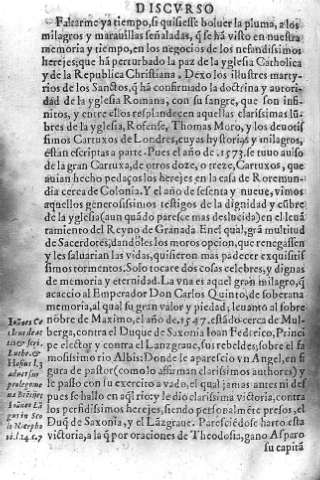 DISCVRSO
Faltarme ya tiempo, si quisiesse boluer la pluma, a los
milagros y marauillas señaladas, q̃ se hã visto en nuestra
memoria y tiempo, en los negocios de los nefandissimos
herejes; que hã perturbado la paz de la yglesia Catholica
y de la Republica Christiana. Dexo los illustres marty-
rios de los Sanctos, q̃ hã confirmado la doctrina y autori-
dad de la yglesia Romana, con su sangre, que son infi-
nitos, y entre ellos resplandecen aquellas clarissimas lũ-
bres de la yglesia, Rofense, Thomas Moro, y los deuotis
simos Cartuxos de Londres, cuyas hystorias y milagros,
estan escriptas a parte. Pues el año de .1573. se tuuo auiso
de la gran Cartuxa, de otros doze, o treze, Cartuxos, que
auian hecho pedaços los herejes en la casa de Roremun-
dia cerca de Colonia. Y el año de sesenta y nueue, vimos
aquellos generosissimos testigos de la dignidad y cũbre
de la yglesia (aun quãdo paresce mas deslucida) en el leuã
tamiento del Reyno de Granada. En el qual, grã multitud
de Sacerdotes, dandoles los moros opcion, que renegassen
y les saluarian las vidas, quisieron mas padecer exquisitis
simos tormentos. Solo tocare dos cosas celebres, y dignas
de memoria y eternidad. La vna es aquel gran milagro, q̃
acaccio al Emperador Don Carlos Quinto, de soberana
memoria, al qual su gran valor y piedad, leuanto al sobre
nõbre de Maximo, el año de .1547. estãdo cerca de Mul-
berga, contra el Duque de Saxonia Ioan Federico, Princi
pe elector y contra el Lanzgraue, sus rebeldes, sobre el fa
mosissimo rio Albis: Donde le aparescio vn Angel, en fi
gura de pastor (como lo affirman clarissimos authores) y
le passo con su exercito a vado, el qual jamas antes ni des
pues se hallo en aq̃l rio: y le dio clarissima victoria, contra
los perfidissimos herejes, siendo personalmẽte presos, el
Duq̃ de Saxonia, y el Lãzgraue. Paresciédose harto esta
victoria, a la q̃ por oraciones de Theodosia, gano Asparo
su capitã
Ioãnes Co
lib. 1. 24. c. 7